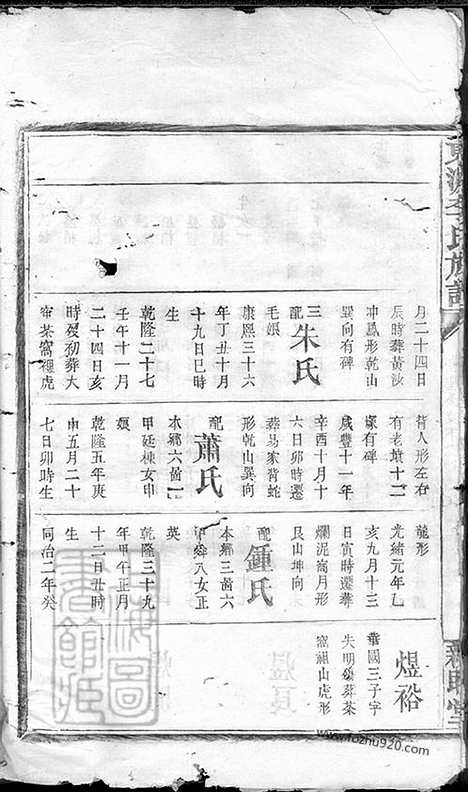 月二十四日
辰時葬黃沙
冲鳳形乾山
巽向有碑
三
配朱氏
毛娘
康熙三十六
年丁丑十月
十九日巳時
生
乾隆二十七
壬午十一月
二十四日亥
時歿初葬大
窩茶窩裡虎
背人形左右
有老墳十二
塚有碑
咸豐十一年
辛酉十月十
六日卯時遷
葬易家背蛇
形乾山巽向
配蕭氏
本鄉六啚
甲廷棟女申
娘
乾隆五年庚
申五月二十
七日卯時生
龍形
光緒元年乙
亥九月十三
日寅時遷葬
爛泥窩月形
艮山坤向
配鍾氏
本鄉三啚六
甲舜八女正
英
乾隆三十九
年甲午正月
十二日丑時
生
同治二年癸
煜裕
華國三子字
失明續葬茶
窩祖山虎形
李氏族譜
上海圖書館藏
www.fozhu920.com